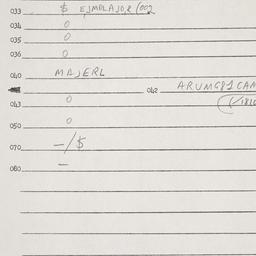 033 $ EJMPLAJO,R (002
034 0
035 0
036 0
040 MAJERL
042 ARUMG81CAM
043 0
050 0
070 -/$
080 -